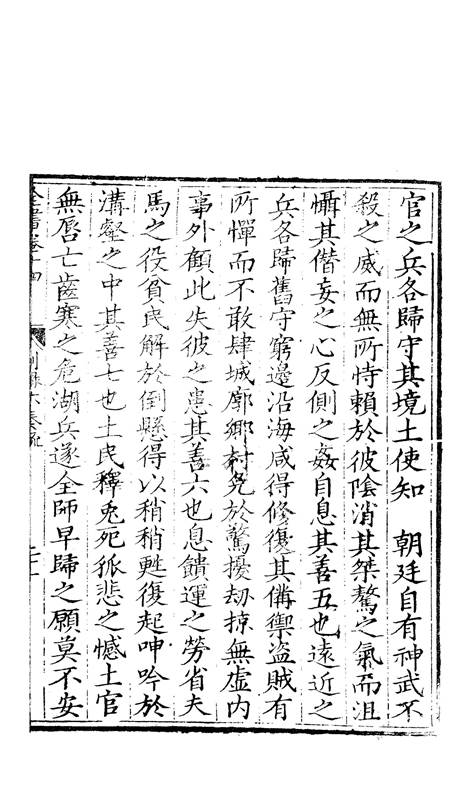 官之兵各歸守其境土使知　朝廷自有神武不
殺之威而無所恃賴於彼陰消其桀驁之氣而沮
懾其僭妄之心反側之姦自息其善五也遠近之
兵各歸舊守窮邊沿海咸得修復其備禦盜賊有
所憚而不敢肆城廓鄉村免於驚擾刼掠無虛內
事外顧此失彼之患其善六也息饋運之勞省夫
馬之役貧民解於倒懸得以稍稍甦復起呻吟於
溝壑之中其善七也土民釋兎死狐悲之憾土官
無唇亡齒寒之危湖兵遂全師早歸之願莫不安
全書卷十四
別錄六奏疏